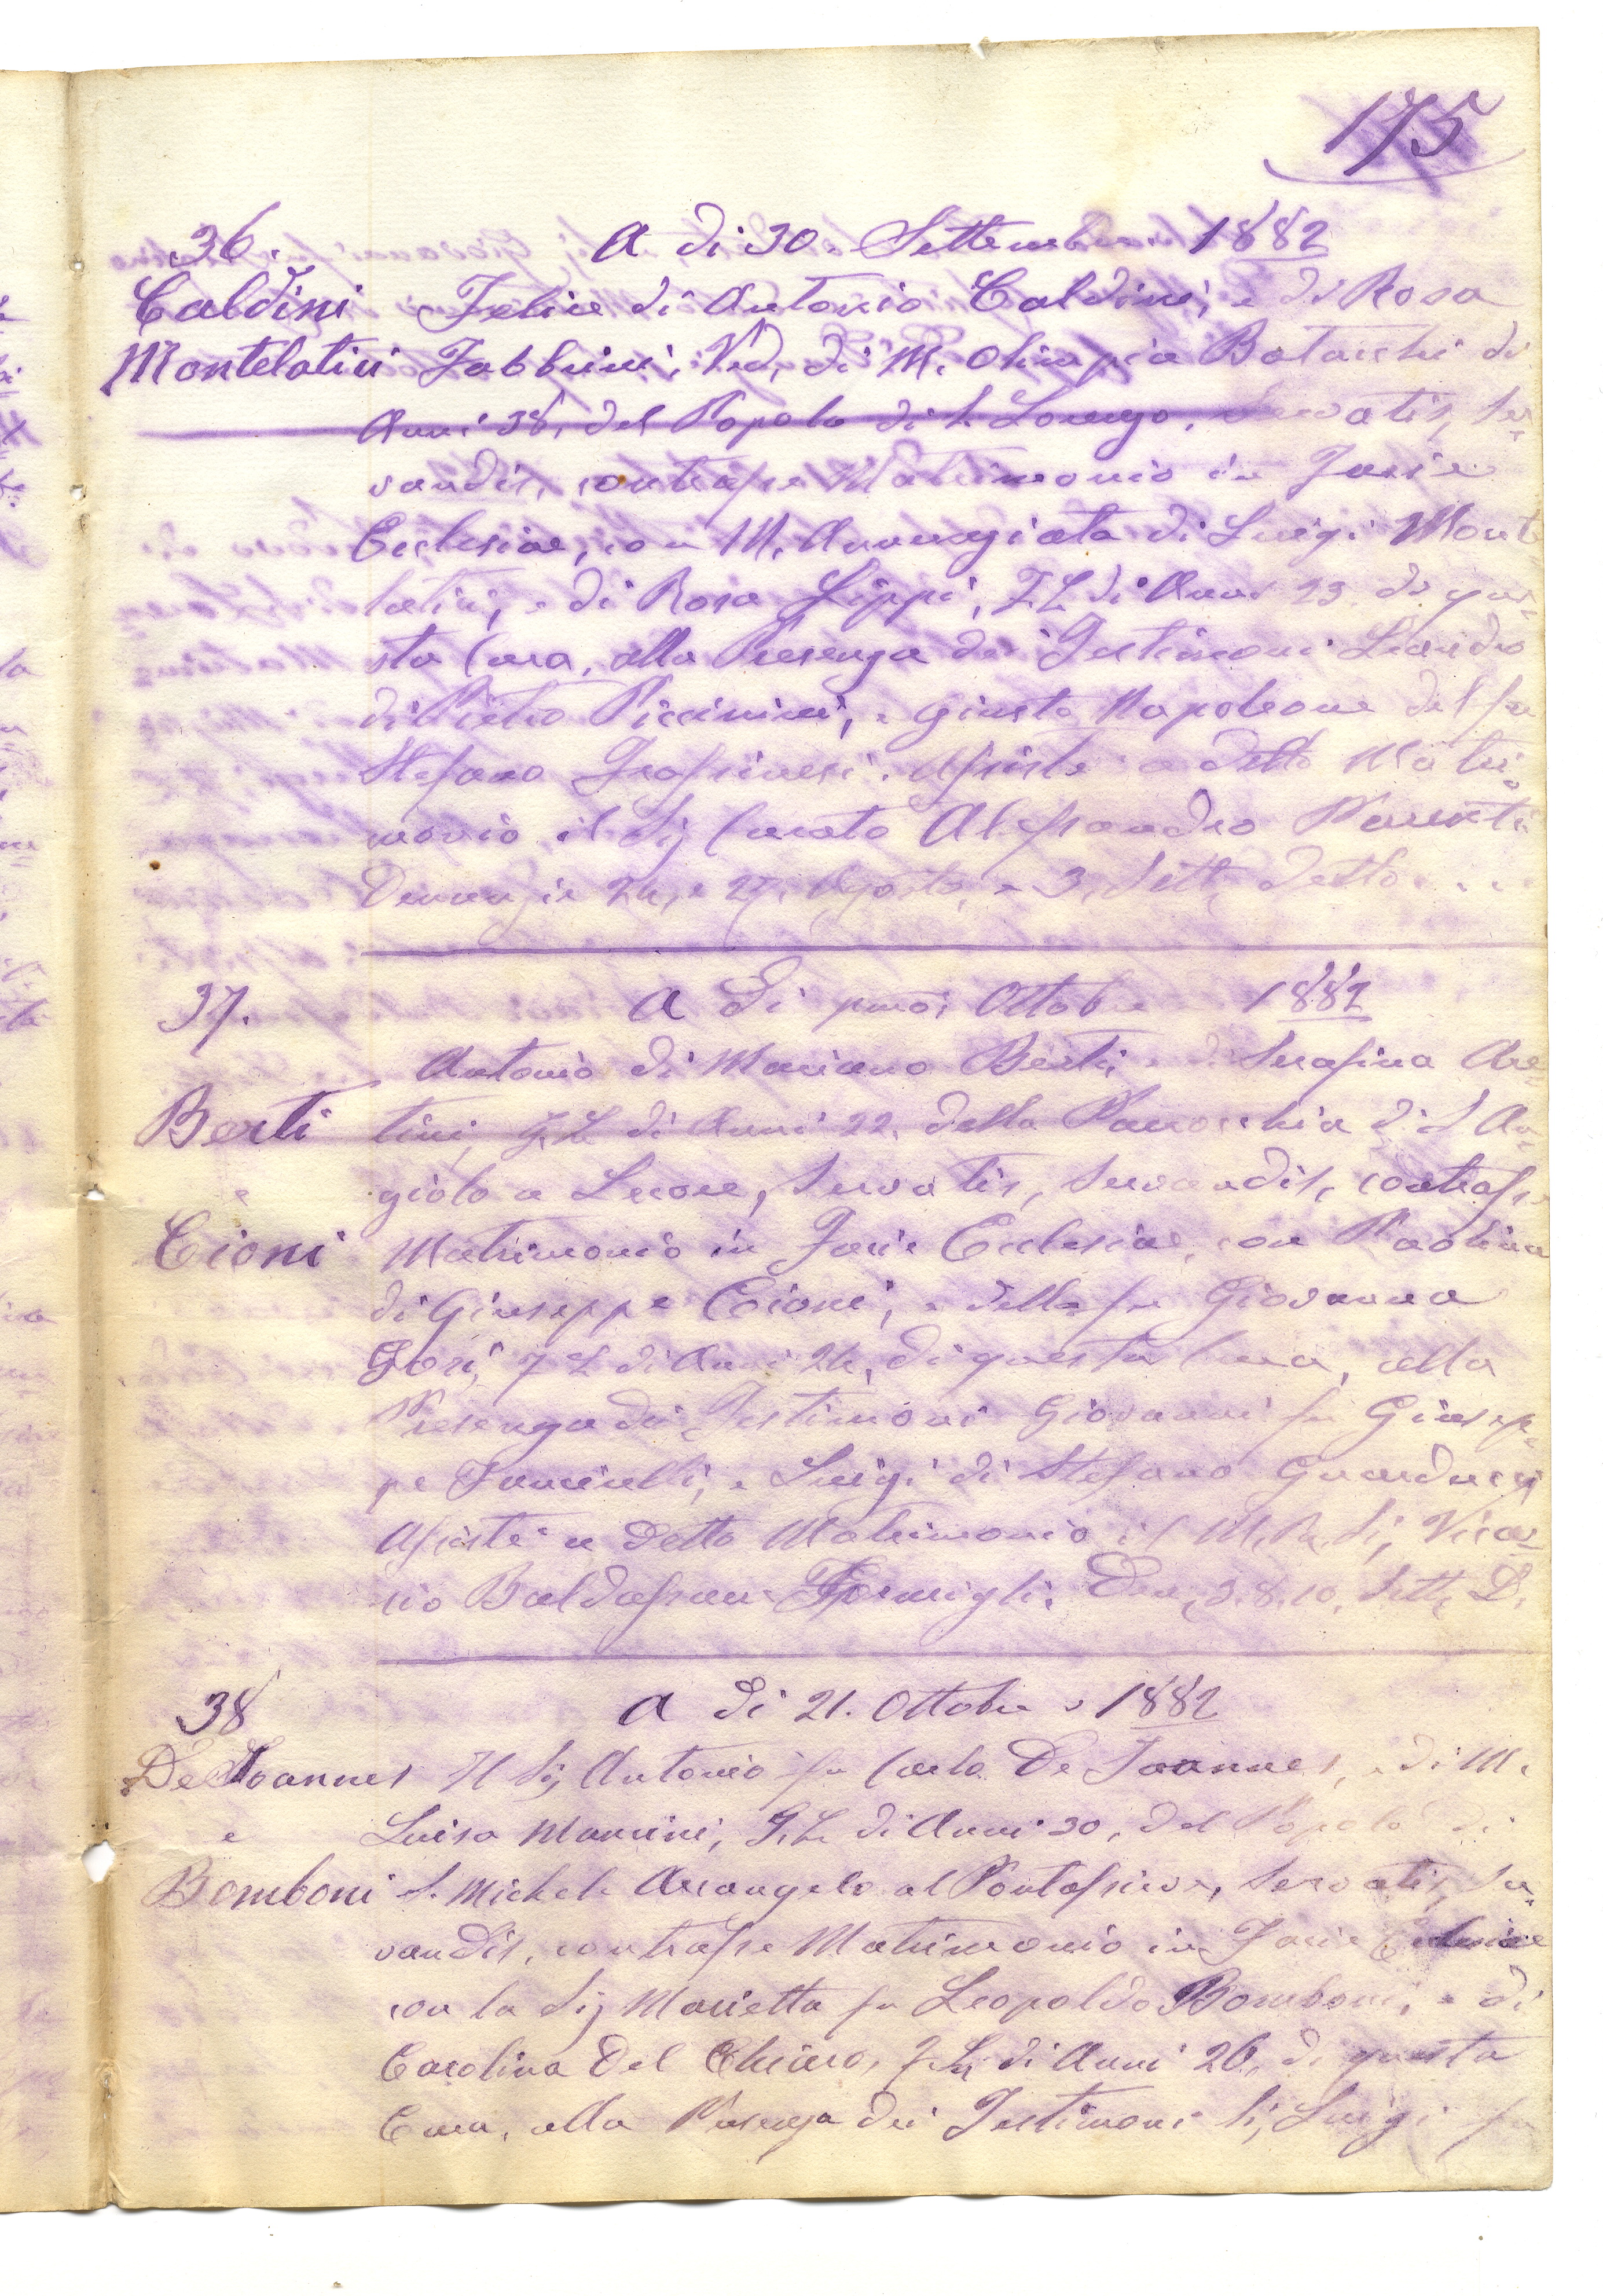 175
36.
A dì 30. Settembre 1882
Caldini
Felice di Antonio Caldini, e di Rosa
Montelatici
Fabbrini, Ved, di M. Olimpia Batacchi di
Anni 38, del Popolo di S. Lorenzo, Servatis, Ser=
vandis, contrasse Matrimonio in Facie
Ecclesiae, con M. Annunziata di Luigi Monte
latici, e di Rosa Lippi, F. L. di Anni 23 di que=
sta Cura, alla Presenza dei Testimoni Leandro
di Pietro Piccinini, e Giusto Napoleone del fu
Stefano. Assistè a detto Matri=
monio il Sig Curato Alessandro Parenti
Denunzie 24, e 27, Agosto, e 3, Sett, detto . . .
37.
A Dì pmo; Ottobre 1882
Antonio di Mariano Berti, e di Serafina Are=
Berti
tini, F. L. di Anni 22, della Parrocchia di S An=
giolo a Lecore, Servatis, Servandis, contrasse
e
Cioni
Matrimonio in Facie Ecclesiae, con Paolina
di Giuseppe Cioni, e della fu Giovanna
Gori, F L di Anni 24, di questa Cura, alla
Presenza dei Testimoni Giovanni fu Giusep=
pe, e Luigi di Stefano Guarducci
Assistè a detto Matrimonio il M. R. Sig, Vica=
rio Baldassarre Formigli. Den, 3. 8. 10, Sett, D.
38
A dì 21. Ottobre 1882
De Joannes
Il Sig Antonio fu Carlo De Joannes, e di M.
Luisa Mancini, F. L. di Anni 30, del Popolo di
e
Bomboni
S. Michele Arcangelo al Pontassieve, Servatis, Ser=
vandis, contrasse Matrimonio in Facie Ecclesiae
con la Sig Marietta fu Leopoldo Bomboni, e di
Carolina Del Chiaro, F. L, di Anni 26, di questa
Cura, alla Presenza dei Testimoni Sig, Luigi fu